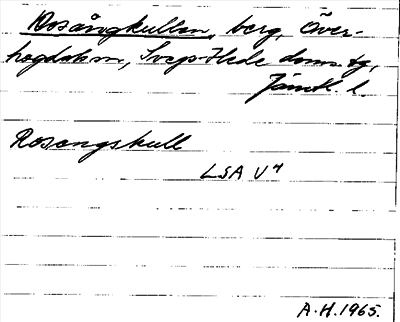 Rosångkullen, berg, Över-
hogdals sn, Svegs-Hede doms tg,
Jämtl. l.
Rosengskull
LSA V⁷
A.H. 1965.